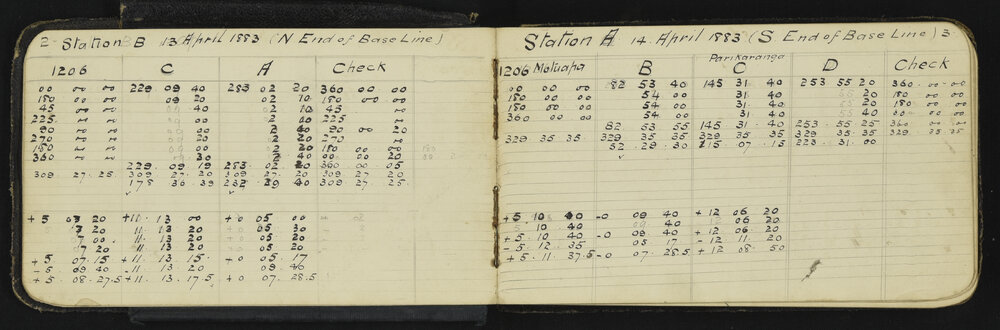 2 Station B 13 April 1883 (N End of Base Line)
1206 C A Check
00 00 00 229 09 40 283 02 20 360 00 00
180 00 00 09 20 02 10 180 00 00
45 00 00 40 02 10 45 00
225 00 2 00 225
2 40 00 20
270 2 20 270
180 2 20 180 00 00
360 30 2 40 00 00 20
229 09 19 283 02 20 360 00 05
309 27 25 309 27 20 309 27 20 309 27 20
175 36 39 232 29 40 309 27 25
+5 07 20 +11 13 00 +0 05 00
7 20 11 13 20 05 30
7 00 11 13 20 05 20
7 20 11 13 20 05 20
+5 07 15 +11 13 15 +0 05 17
-5 09 40 -11 13 20 09 40
+5 08 27.5 +11 13 17.5 +0 07 28.5
Station A 14 April 1883 (S End of Base Line) 3
Parikaranga
1206 Motuapa B C D Check
00 00 00 82 53 40 145 31 40 253 55 20 360 00 00
180 00 00 54 00 31 40 55 20 180 00 00
180 00 00 54 00 31 40 55 20 180 00 00
360 00 00 54 00 31 40 55 40 360 00 00
82 53 55 145 31 40 253 55 25 360
329 35 35 329 35 35 329 35 35 329 35 35 329 35 35
52 29 30 115 07 15 223 31 00
+5 10 40 -0 09 40 +12 06 20
10 40 09 40 06 20
+5 10 40 -0 09 40 +12 06 20
-5 12 35 05 17 -12 11 20
+5 11 37.5 -0 07 28.5 +12 08 50